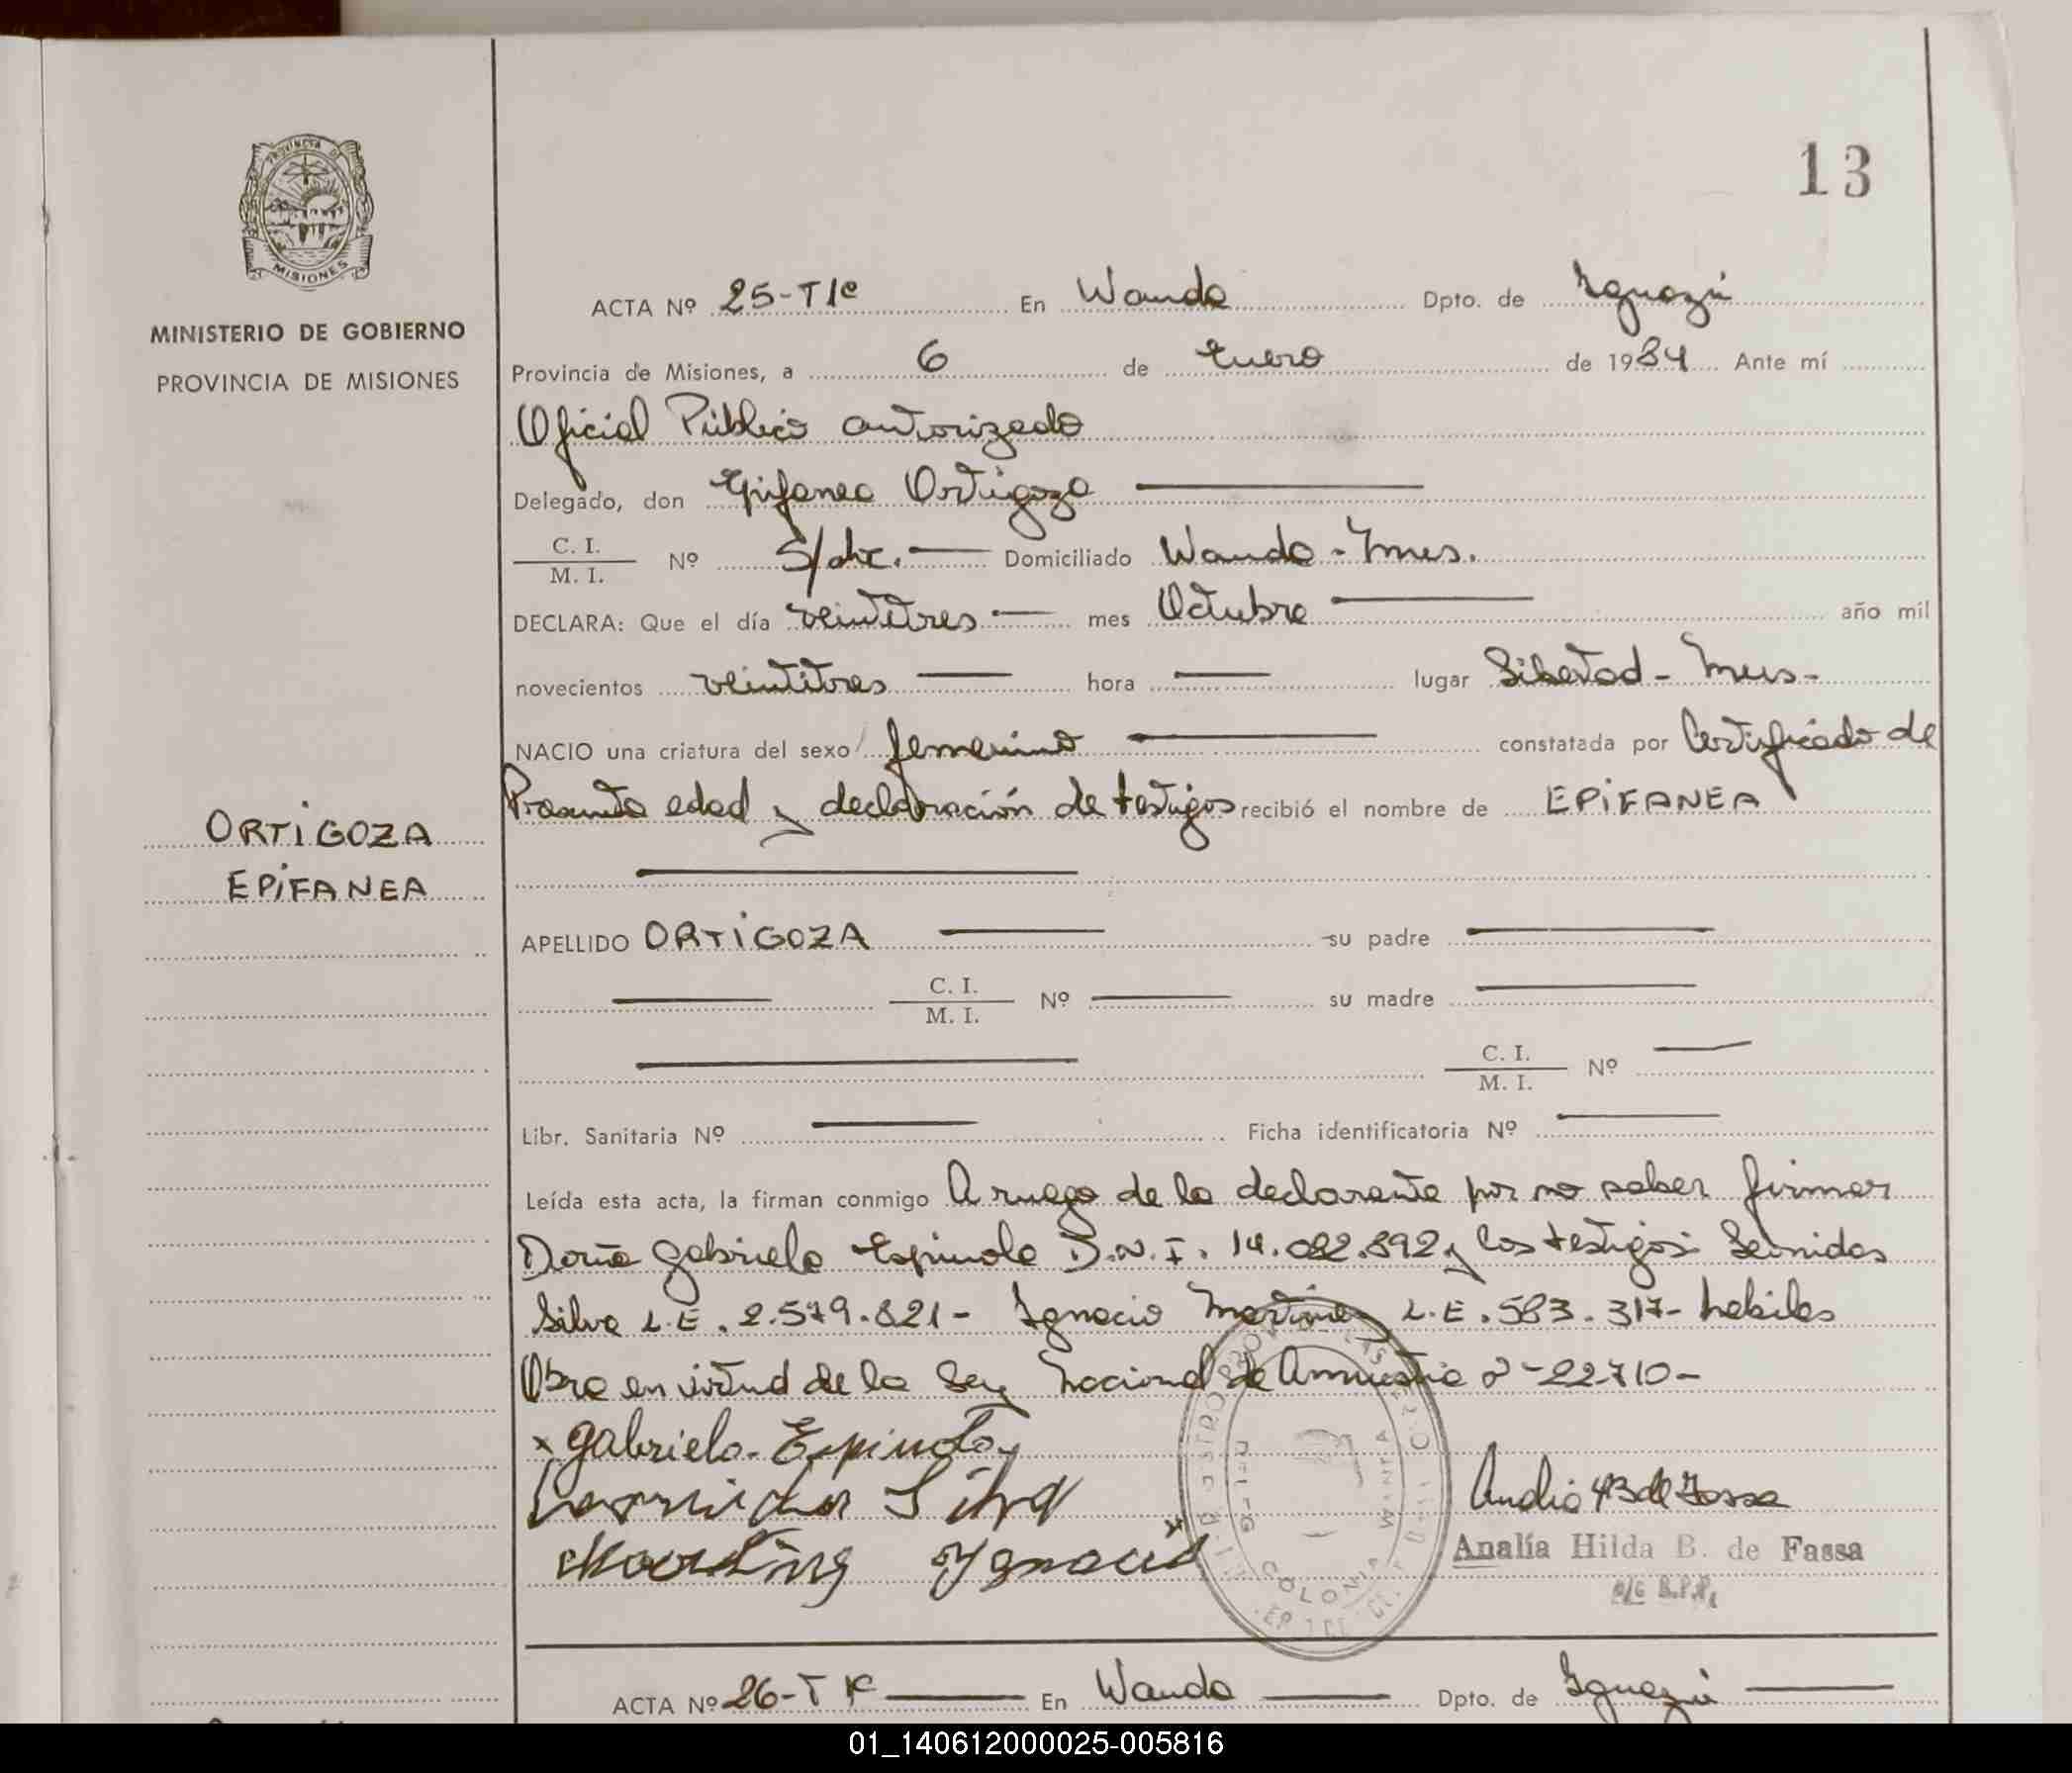 13
PROVINCIA DE
MISIONES
MINISTERIO DE GOBIERNO
PROVINCIA DE MISIONES
ACTA Nº 25-T1º En Wanda Dpto. de Iguazú
Provincia de Misiones, a 6 de Enero de 1984 Ante mí
Oficial Público autorizado
Delegado, don Epifanea Ortigoza
C. I.
M. I. Nº S/doc. Domiciliado Wanda - Mnes.
DECLARA: Que el día veintitres mes Octubre año mil
novecientos veintitres hora lugar Libertad - Mnes-
NACIO una criatura del sexo femenino constatada por Certificado de
Presunta edad y declaración de testigos recibió el nombre de EPIFANEA
ORTIGOZA
EPIFANEA
APELLIDO ORTIGOZA su padre
C. I.
M. I. Nº su madre
C. I.
M. I. Nº
Libr. Sanitaria Nº Ficha identificatoria Nº
Leída esta acta, la firman conmigo A ruego de la declarante por no saber firmar
Doña Gabriela Espinola D.N.I. 14.082.892 y los testigos: Leonidas
Silva L.E. 2.579.821- Ignacio Martinez L.E. 583.317- hábiles
Obra en virtud de la Ley Nacional de Amnistia 22710-
x gabriela. Espinola
Leonidas Silva
Ygnacio
COLONIA WANDA
Analia H B de Fassa
Analía Hilda B. de Fassa
ACTA Nº 26-T1º En Wanda Dpto. de Iguazú
01_140612000025-005816